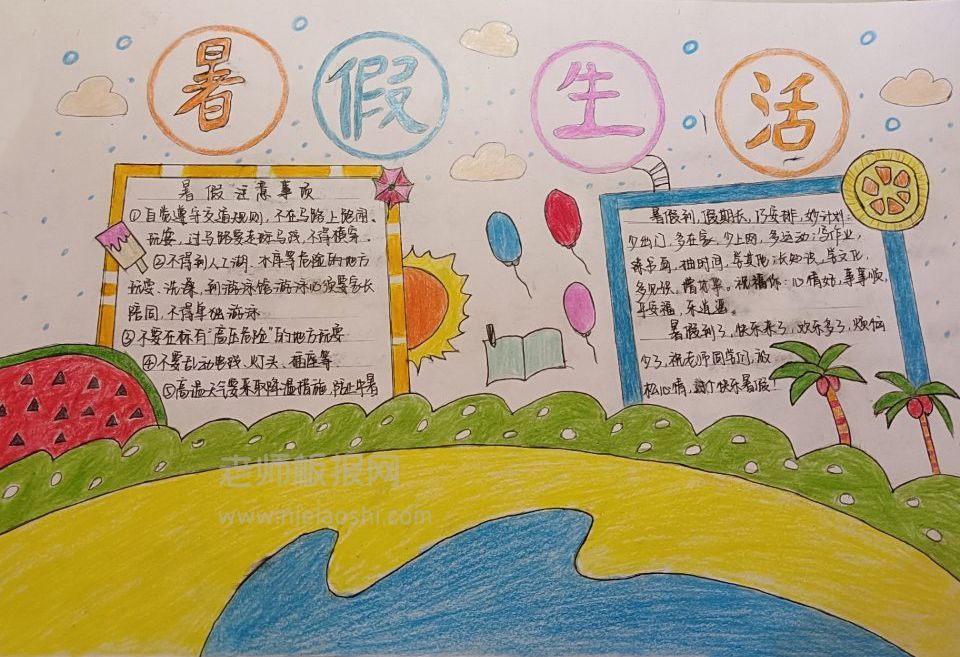 暑假生活
暑假注意事项
①自觉遵守交通规则,不在马路上跑闹、
玩耍,过马路要走斑马线,不得横穿。
②不得到人工湖、水库等危险的地方
玩耍、洗澡,到游泳馆游泳必须要家长
陪同,不得单独游泳
③不要在标有"高压危险"的地方玩耍
④不要乱动电线、灯头、插座等
⑤高温天气要采取降温措施,防止中暑
暑假到,假期长,巧安排,妙计划:
少出门,多在家,少上网,多运动;写作业,
练书画,抽时间,学其他;长知识,学文化,
多见识,
祝福你:心情好,事事顺,
平安福,乐逍遥。
暑假到了,快乐来了,欢乐多了,烦恼
少了,祝老师同学们,放
松心情,过个快乐暑假!
老师板报网
www.nielaoshi.com